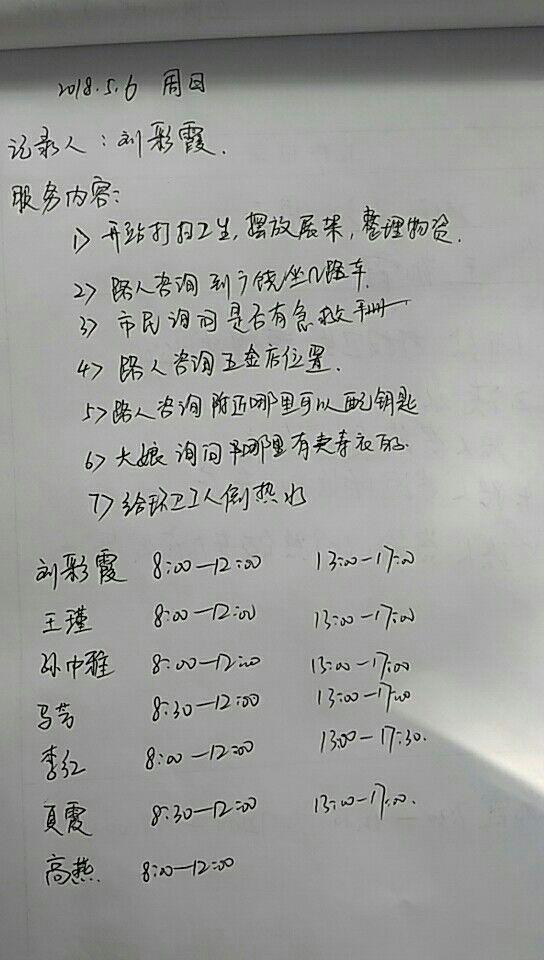 2018.5.6 周日
记录人:刘彩霞.
服务内容:
1> 开站打扫卫生,摆放展架,整理物资.
2> 路人咨询到广饶坐几路车.
3> 市民询问是否有急救手册
4> 路人咨询五金店位置.
5> 路人咨询附近哪里可以配钥匙
6> 大娘询问哪里有卖寿衣的.
7> 给环卫工人倒热水
刘彩霞 8:00—12:00 13:00—17:00
王瑾 8:00—12:00 13:00—17:00
孙巾雅 8:00—12:00 13:00—17:00
马芳 8:30—12:00 13:00—17:00
李红 8:00—12:00 13:00—17:30.
夏霞 8:30—12:00 13:00—17:00.
高燕. 8:00—12:00